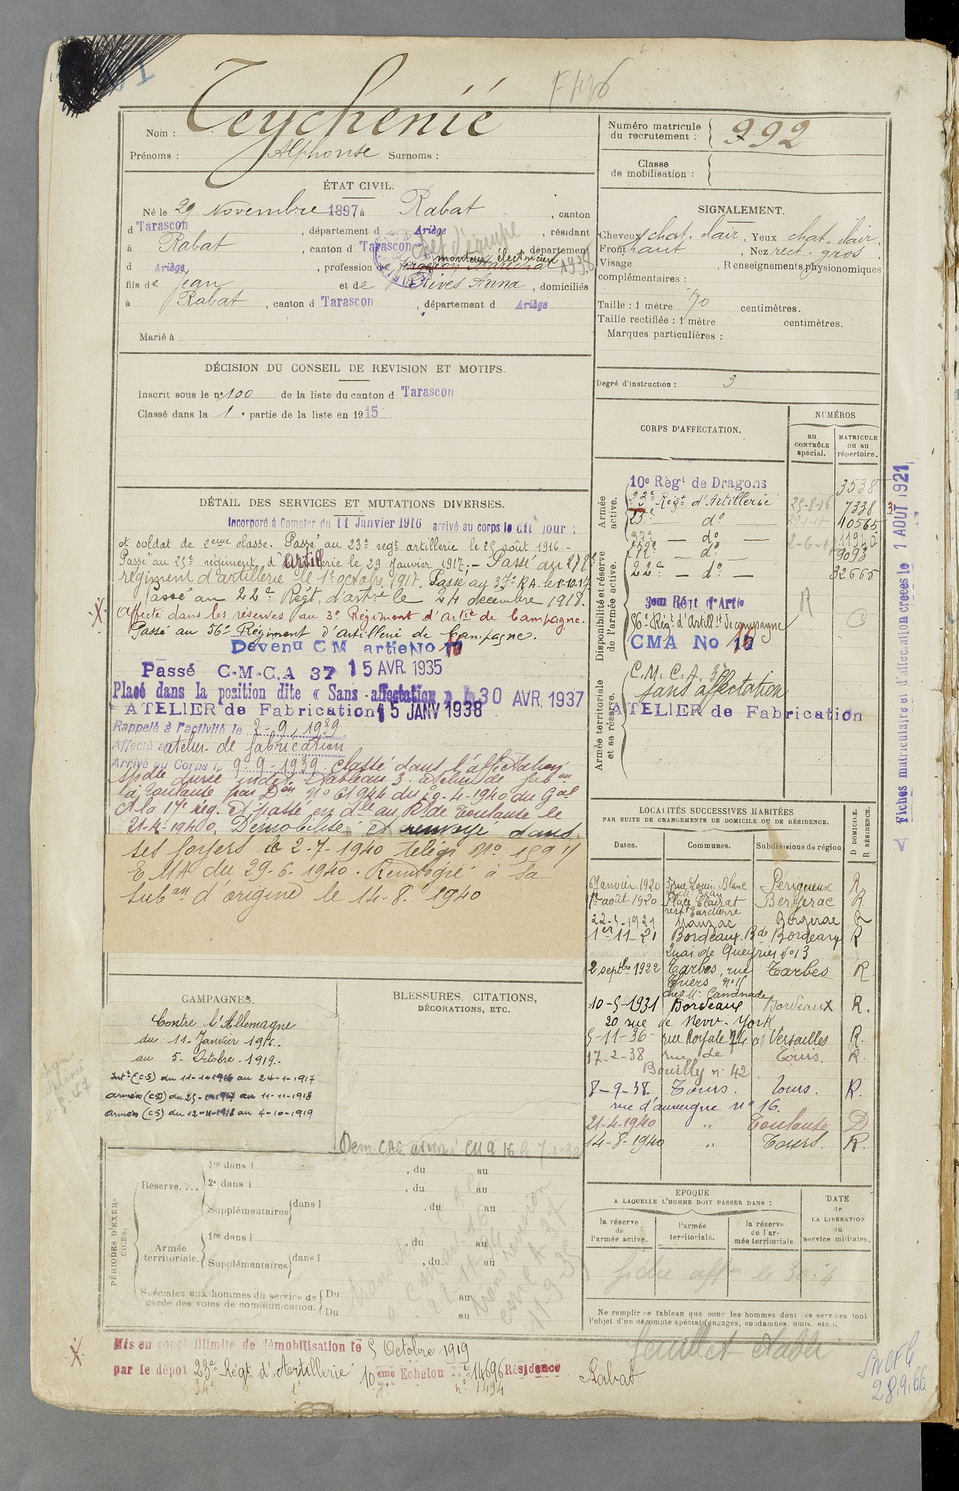 Nom : Teychenié
Prénoms : Alphonse Surnoms :
ÉTAT CIVIL.
Né le 29 Novembre 1897 à Rabat , canton
d Tarascon , département d Ariège , résidant
à Rabat , canton d Tarascon , département
d Ariège , profession de monteur électricien
chef d'équipe 1938
fils de Jean et de Rives Anna , domiciliés
à Rabat , canton d Tarascon , département d Ariège
Marié à
Numéro matricule du recrutement : 992
Classe de mobilisation :
SIGNALEMENT.
Cheveux chat. clair , Yeux chat. clair ,
Front haut , Nez rect. gros .
Visage , Renseignements physionomiques
complémentaires :
Taille : 1 mètre 70 centimètres.
Taille rectifiée : 1 mètre centimètres.
Marques particulières :
Degré d'instruction : 3
DÉCISION DU CONSEIL DE REVISION ET MOTIFS.
Inscrit sous le n° 100 de la liste du canton d Tarascon
Classé dans la 1 e partie de la liste en 1915
DÉTAIL DES SERVICES ET MUTATIONS DIVERSES.
Incorporé à Compter du 11 Janvier 1916 arrivé au corps le dit jour ;
et soldat de 2eme classe. Passé au 23e regt artillerie le 25 août 1916.-
Passé au 25e régiment d'Artillerie le 29 Janvier 1917.- Passé au 272e
régiment d'artillerie le 1er octobre 1917. Passé au 37e R.A. le
Passé au 22e Regt. d'artie le 24 décembre 1918.
Affecté dans les réserves au 3e Régiment d'Artie de Campagne.
Passé au 36e Régiment d'Artillerie de Campagne.
Devenu C M artie No
Passé C-M-C-A 37 15 AVR. 1935
Placé dans la position dite « Sans affectation » le 30 AVR. 1937
ATELIER de Fabrication 15 JANV 1938
Rappelé à l'activité le 2-9-1939
Affecté atelier de fabrication
Arrivé au Corps le 9-9-1939 Classé dans l'affectation
spéciale durée indet. tableau 3 atelier de fabon
à Toulouse par Don n° 61944 du 29-4-1940 du Gal
Ct la 17e reg. Et passé en dlle au Bde Toulouse le
21-4-1940, Démobilisé et renvoyé dans
ses foyers le 2-7-1940 Telégr. n°
EMA du 29-6-1940. Remobilisé à sa
subon d'origine le 14-8-1940
CORPS D'AFFECTATION.
NUMÉROS
au CONTRÔLE spécial.
MATRICULE ou au répertoire.
Armée active.
10e Régt de Dragons 3538
23e Régt d'Artillerie 25-8-16 7338
25e do 10565
37e — do — 11940
272e — do 9093
22e — do — 32665
Disponibilité et réserve de l'armée active.
3em Régt d'Artie
36e Régt d'Artillie de campagne
CMA No
C.M.C.A. 37
sans affectation
ATELIER de Fabrication
Armée territoriale et sa réserve.
Fiches matriculaire et d'affectation créées le 1 AOUT 1921
LOCALITÉS SUCCESSIVES HABITÉES
PAR SUITE DE CHANGEMENTS DE DOMICILE OU DE RÉSIDENCE.
Dates. Communes. Subdivisions de région D DOMICILE. R RÉSIDENCE.
6 Janvier 1920 rue Louis Blanc Périgueux R
1er août 1920 Place Clairat Bergerac R
22-5-1921 Mauzac Bergerac R
1er-11-21 Bordeaux. Bde Bordeaux R
Quai de Queyries N° 13
2 septbre 1922 Tarbes, rue Tarbes R
Thiers n° 11
10-5-1931 Bordeaux Bordeaux R.
20 rue de New-York
5-11-36- rue Royale 74 à Versailles R.
17-2-38 rue de Tours. R.
Bouilly n° 42
8-9-38. Tours . Tours. R.
rue d'auvergne n° 16.
21-4-1940 " Toulouse D
14-8-1940 " Tours. R.
CAMPAGNES.
Contre l'Allemagne
du 11 Janvier 1916.
au 5 Octobre 1919.
Intr (CS) du 11-1-1916 au 24-1-1917
armées (CD) du 25-1-1917 au 11-11-1918
armées (CS) du 12-11-1918 au 4-10-1919
BLESSURES, CITATIONS, DÉCORATIONS, ETC.
PÉRIODES D'EXERCICES.
Réserve. . . .
1re dans l , du au
2e dans l , du au
Supplémentaires dans l , du au
Armée territoriale.
1re dans l , du au
Supplémentaires dans l , du au
Spéciales aux hommes du service de garde des voies de communication.
Du au
Du au
EPOQUE
A LAQUELLE L'HOMME DOIT PASSER DANS :
la réserve de l'armée active.
l'armée territoriale.
la réserve de l'armée territoriale.
DATE de LA LIBÉRATION du service militaire.
Ne remplir ce tableau que pour les hommes dont les services font l'objet d'un décompte spécial (engagés, condamnés, omis, etc.).
Mis en congé illimité de démobilisation le 5 Octobre 1919
par le dépôt 23e Régt d'Artillerie 10eme Echelon n° 14696 Résidence Rabat